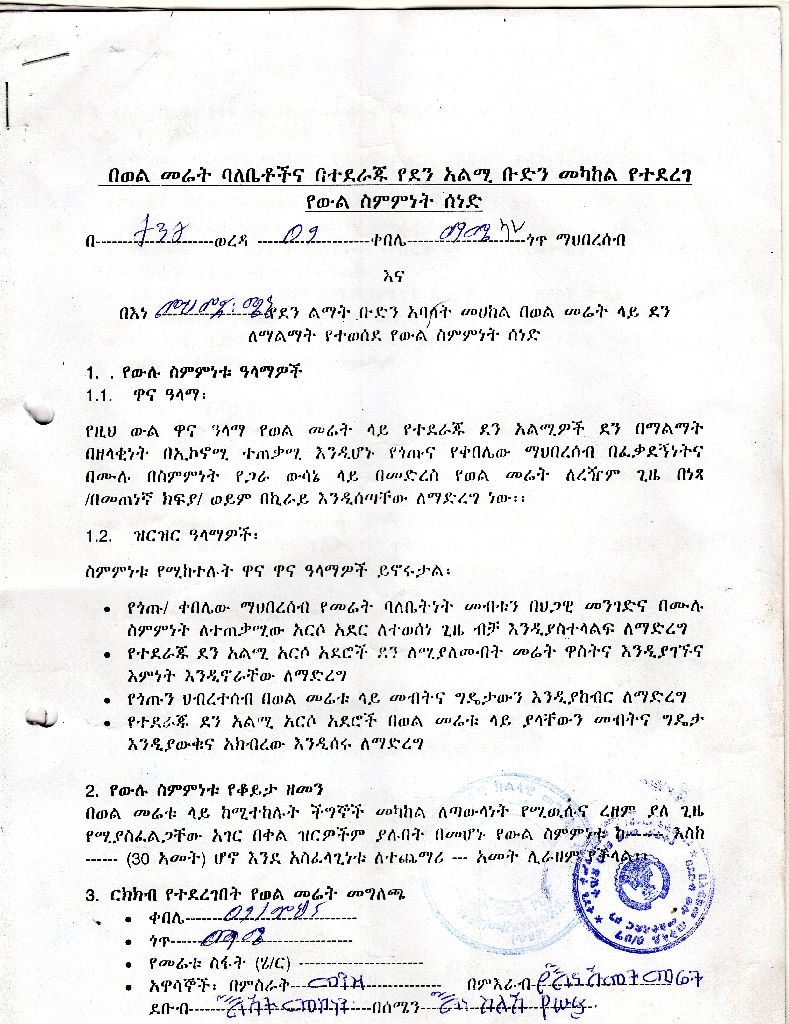 በወል መሬት ባለቤቶችና በተደራጁ የደን አልሚ ቡድን መካከል የተደረገ
የውል ስምምነት ሰነድ
በ----------ታንታ----------ወረዳ ----------09----------ቀበሌ----------ጎጥ ማህበረሰብ
እና
በእነ የደን ልማት ቡድን አባላት መሀከል በወል መሬት ላይ ደን
ለማልማት የተወሰደ የውል ስምምነት ሰነድ
1. . የውሉ ስምምነቱ ዓላማዎች
1.1. ዋና ዓላማ፡
የዚህ ውል ዋና ዓላማ የወል መሬት ላይ የተደራጁ ደን አልሚዎች ደን በማልማት
በዘላቂነት በኢኮኖሚ ተጠቃሚ እንዲሆኑ የጎጡና የቀበሌው ማህበረሰብ በፈቃደኝነትና
በሙሉ በስምምነት የጋራ ውሳኔ ላይ በመድረስ የወል መሬት ለረዥም ጊዜ በነጻ
/በመጠነኛ ክፍያ/ ወይም በኪራይ እንዲሰጣቸው ለማድረግ ነው፡፡
1.2. ዝርዝር ዓላማዎች፡
ስምምነቱ የሚከተሉት ዋና ዋና ዓላማዎች ይኖሩታል፡
• የጎጡ/ ቀበሌው ማህበረሰብ የመሬት ባለቤትነት መብቱን በህጋዊ መንገድና በሙሉ
ስምምነት ለተጠቃሚው አርሶ አደር ለተወሰነ ጊዜ ብቻ እንዲያስተላልፍ ለማድረግ
• የተደራጁ ደን አልሚ አርሶ አደሮች ደን ለሚያለሙበት መሬት ዋስትና እንዲያገኙና
እምነት እንዲኖራቸው ለማድረግ
• የጎጡን ህብረተሰብ በወል መሬቱ ላይ መብትና ግዴታውን እንዲያከብር ለማድረግ
• የተደራጁ ደን አልሚ አርሶ አደሮች በወል መሬቱ ላይ ያላቸውን መብትና ግዴታ
እንዲያውቁና አክብረው እንዲሰሩ ለማድረግ
2. የውሉ ስምምነቱ የቆይታ ዘመን
በወል መሬቱ ላይ ከሚተከሉት ችግኞች መካከል ለጣውላነት የሚዉሉና ረዘም ያለ ጊዜ
የሚያስፈልጋቸው አገር በቀል ዝርዎችም ያሉበት በመሆኑ የውል ስምምነቱ ከ------ እስከ
------ (30 አመት) ሆኖ እንደ አስፈላጊነቱ ለተጨማሪ --- አመት ሊራዘም ይችላል፡፡
3. ርክክብ የተደረገበት የወል መሬት መግለጫ
• ቀበሌ--------------------
• ጎጥ--------------------
• የመሬቱ ስፋት (ሄ/ር) --------------------
• አዋሳኞች፡ በምስራቅ----------መንገድ---------- በምእራብ
ደቡብ----------በሰሜን